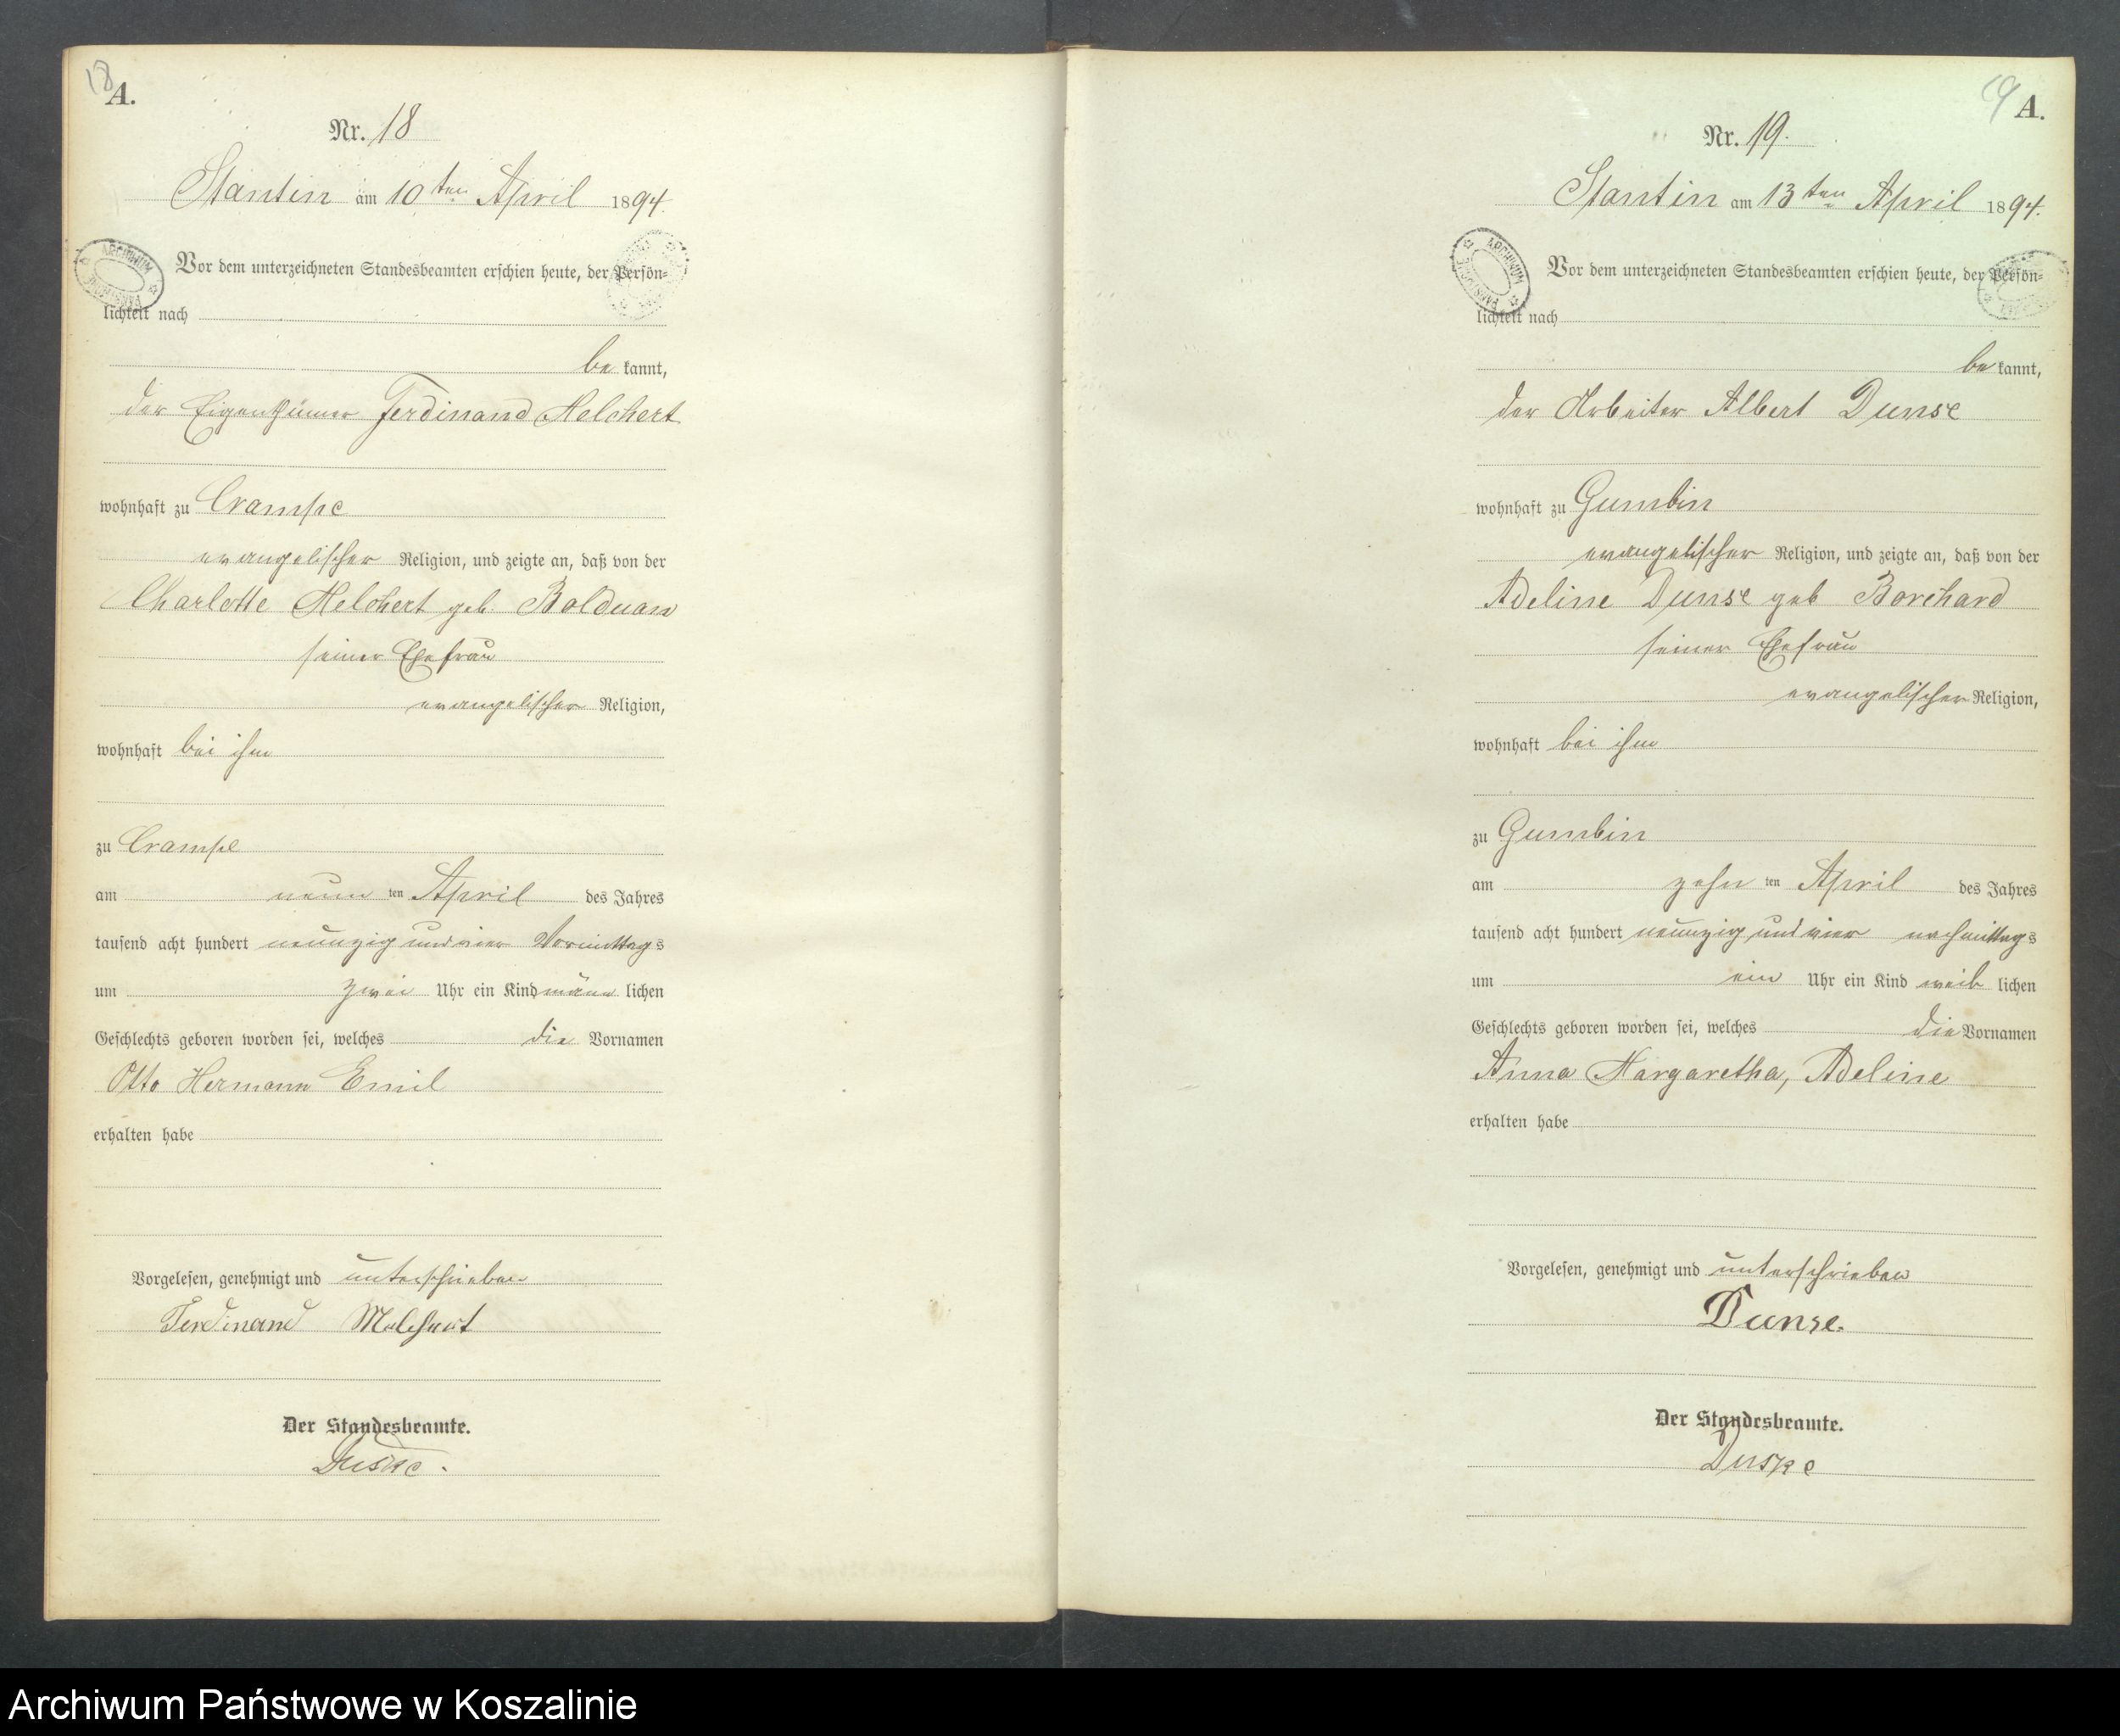 18
A.
Nr. 18
Stantin am 10ten April 1894.
Vor dem unterzeichneten Standesbeamten erschien heute, der Persön-
lichkeit nach
be kannt,
der Eigenthümer Ferdinand Melchert
wohnhaft zu Crampe
evangelischer Religion, und zeigte an, daß von der
Charlotte Melchert geb. Bolduan
seiner Ehefrau
evangelischer Religion,
wohnhaft bei ihm
zu Crampe
am neun ten April des Jahres
tausend acht hundert neunzig und vier Vormittags
um zwei Uhr ein Kind männ lichen
Geschlechts geboren worden sei, welches die Vornamen
Otto Hermann Emil
erhalten habe
Vorgelesen, genehmigt und unterschrieben
Ferdinand Melchert
Der Standesbeamte.
Duske.
ARCHIWUM PAŃSTWOWE
19
A.
Nr. 19.
Stantin am 13ten April 1894.
Vor dem unterzeichneten Standesbeamten erschien heute, der Persön-
lichkeit nach
be kannt,
der Arbeiter Albert Dunse
wohnhaft zu Gumbin
evangelischer Religion, und zeigte an, daß von der
Adeline Dunse geb Borchard
seiner Ehefrau
evangelischer Religion,
wohnhaft bei ihm
zu Gumbin
am zehn ten April des Jahres
tausend acht hundert neunzig und vier nachmittags
um ein Uhr ein Kind weib lichen
Geschlechts geboren worden sei, welches die Vornamen
Anna Margaretha, Adeline
erhalten habe
Vorgelesen, genehmigt und unterschrieben
Dunse.
Der Standesbeamte.
Duske
ARCHIWUM PAŃSTWOWE
Archiwum Państwowe w Koszalinie